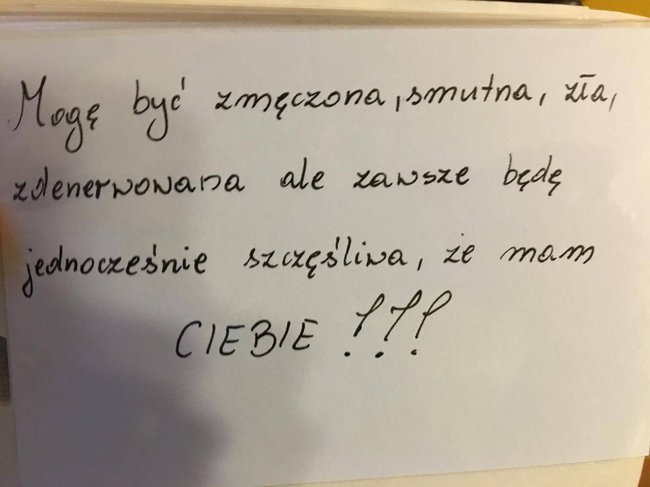 Mogę być zmęczona, smutna, zła,
zdenerwowana ale zawsze będę
jednocześnie szczęśliwa, że mam
CIEBIE !!!